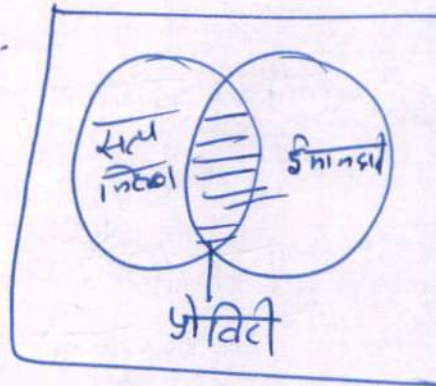 सत्य
निष्ठा
ईमानदारी
प्रोविटी